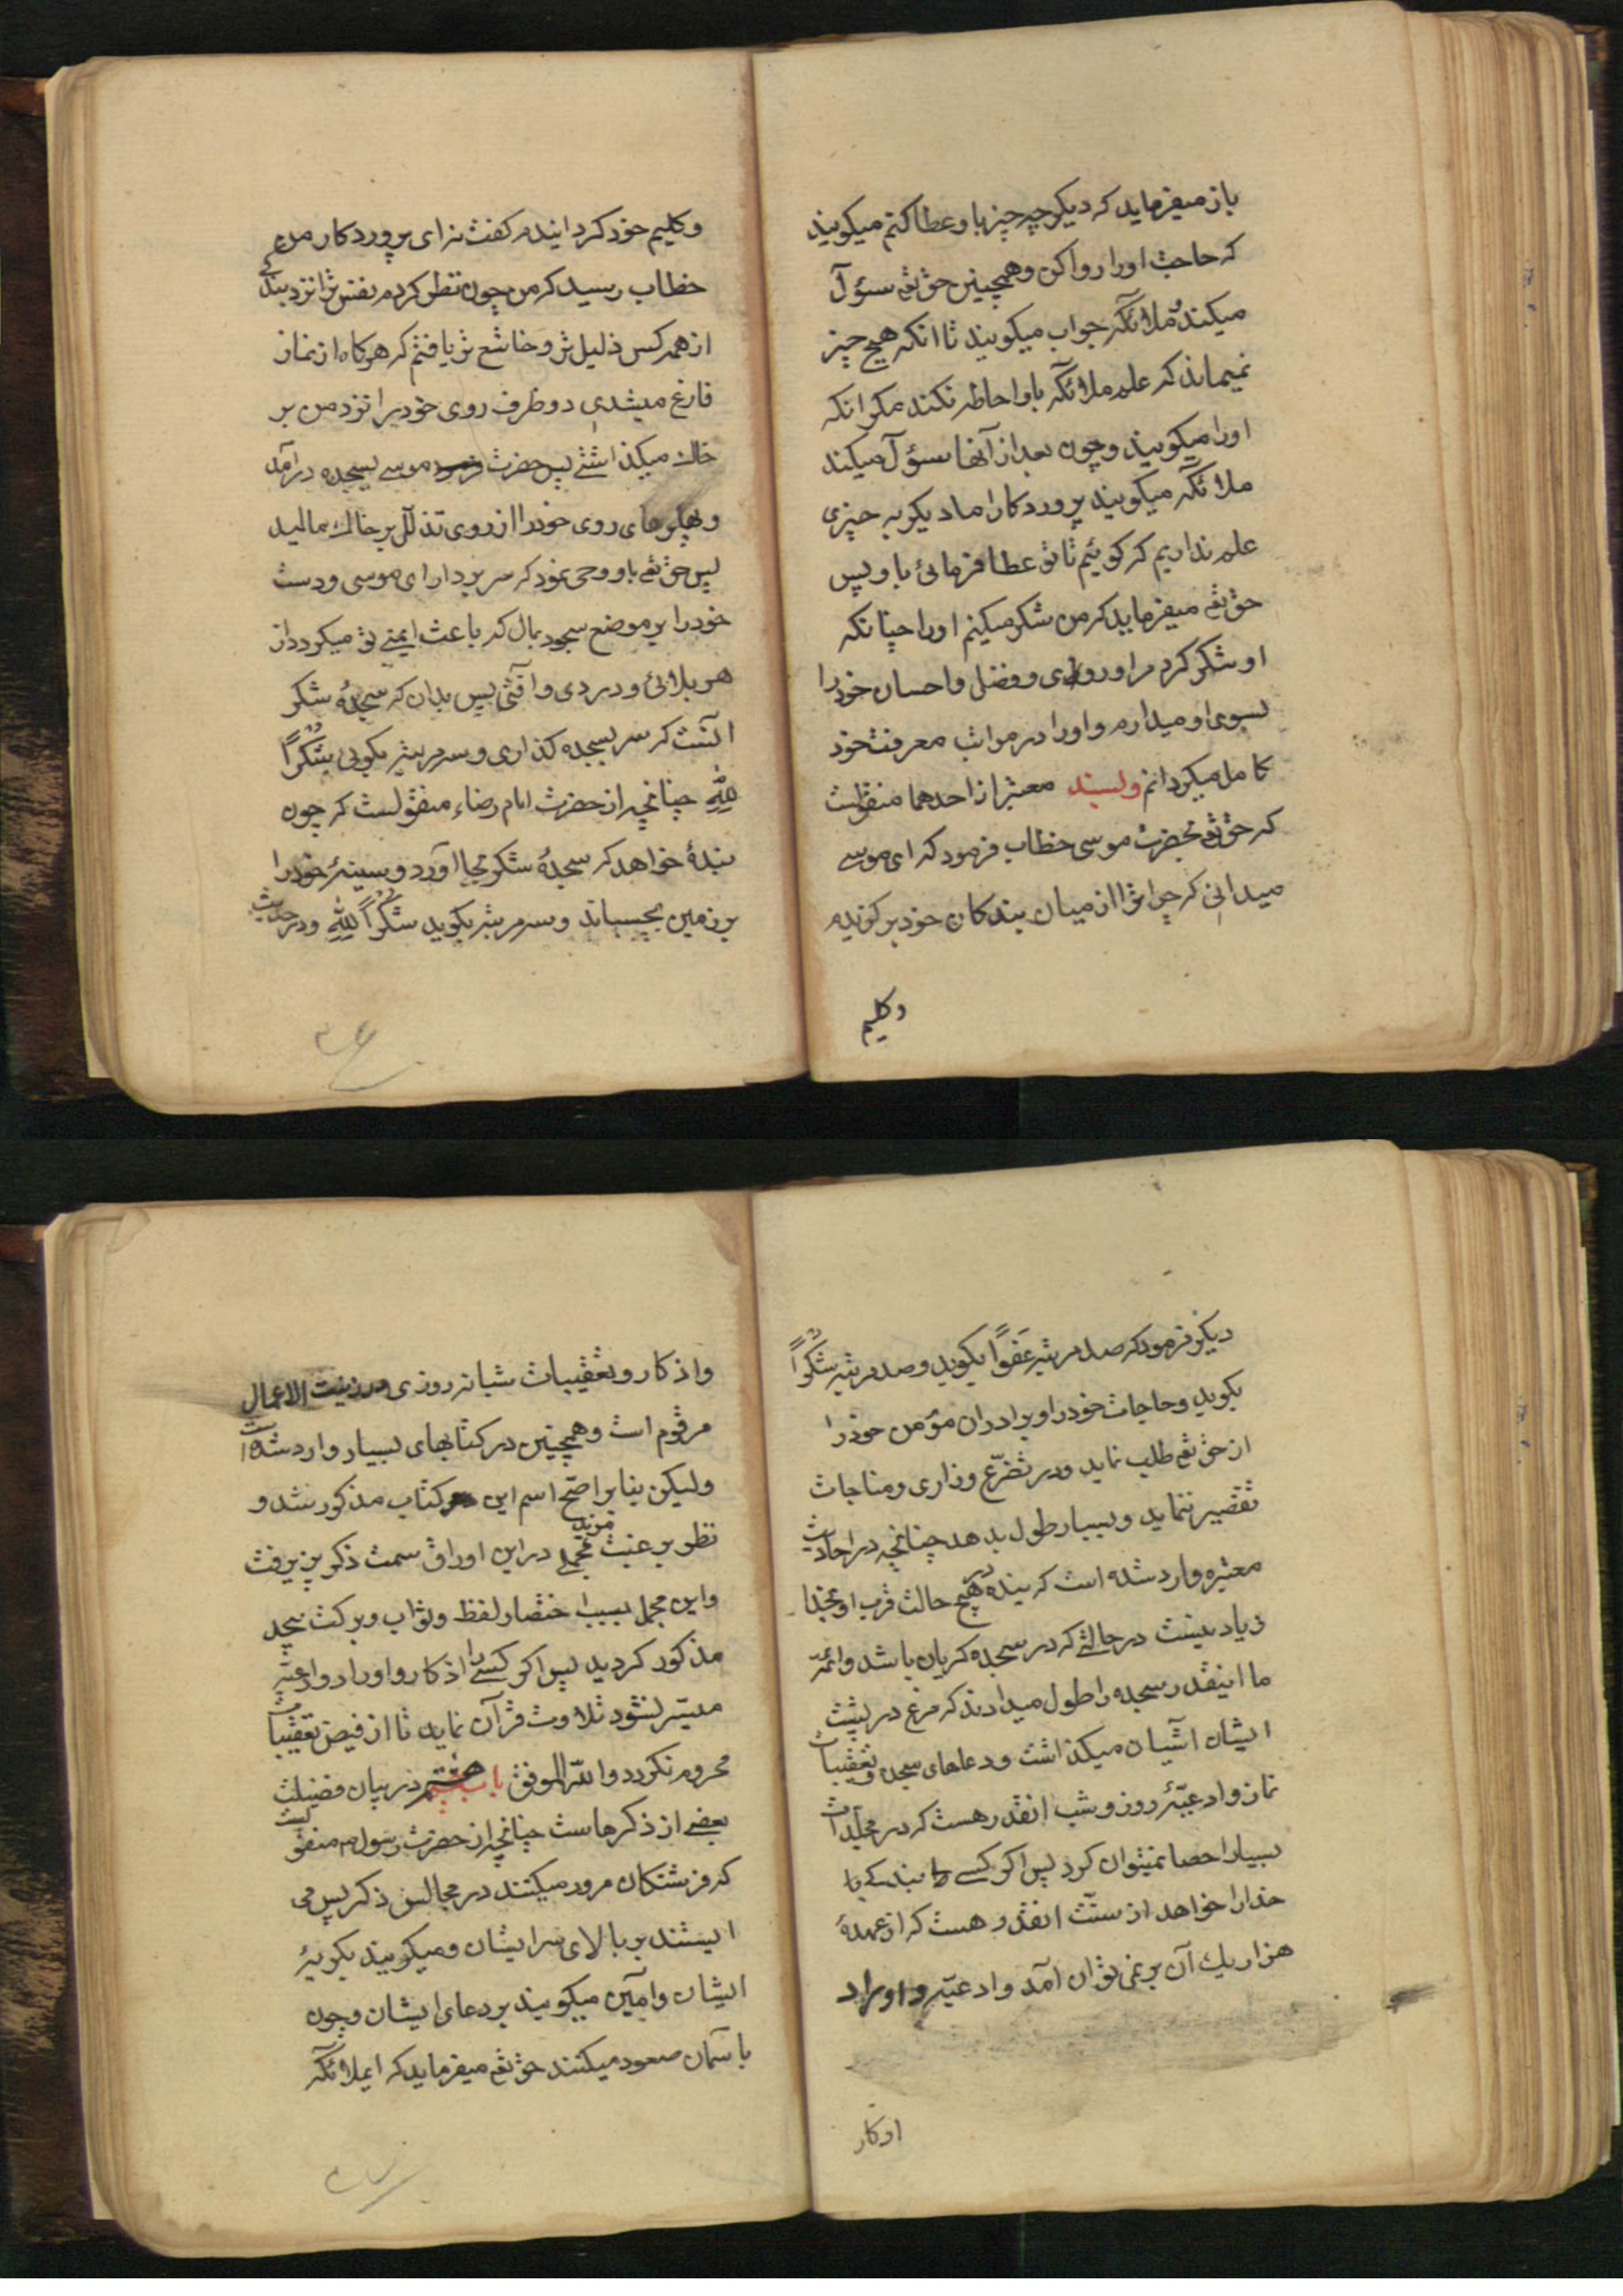 باز میفرماید که دیکر چه چیز باو عطا کنم میکویند
که حاجت اورا روا کن و همچنین حق تع سؤآل
میکند و ملائکه جواب میکویند تا انکه هیچ چیز
نمیماند که علم ملائکه باو احاطه نکند مکر انکه
اورا میکویند و چون بعد از آنها سؤآل میکند
ملائکه میکویند پروردکارا ما دیکر به چیزی
علم نداریم که کوئیم تا تو عطا فرمائی باو پس
حق تع میفرماید که من شکر میکنم اورا چنانکه
او شکر کرد مرا و روی و فضل و احسان خود را
بسوی او میدارم و اورا در مراتب معرفت خود
کامل میکردانم و بسند معتبر از احدهما منقولست
که حق تع بحضرت موسی خطاب فرمود که ای موسی
میدانی که چرا ترا از میان بندکان خود برکزیدم
وکلیم
وکلیم خود کردانیدم کفت نه ای پروردکار من
خطاب رسید که من چون نظر کردم نفس ترا نزد بندکی
از همه کس ذلیل تر و خاشع تر یافتم که هرکاه از نماز
فارغ میشدی دو طرف روی خود را نزد من بر
خاک میکذاشتی پس حضرت موسی بسجده درآمد
و پهلوهای روی خود را از روی تذلل بر خاک مالید
پس حق تع باو وحی نمود که سر بردار ای موسی و دست
خود را بر موضع سجود بمال که باعث ایمنی تو میکردد از
هر بلائی و دردی و آفتی پس بدان که سجدۀ شکر
آنست که سر بسجده کذاری و سه مرتبه بکوئی شُکْرًا
لِلّهِ چنانچه از حضرت امام رضاء منقولست که چون
بندۀ خواهد که سجدۀ شکر بجا آورد و سینۀ خود را
بر زمین بچسباند و سه مرتبه بکوید شُکْرًا لِلّهِ و در حدیث
دیکر فرمود که صد مرتبه عَفوًا بکوید و صد مرتبه شُکْرًا
بکوید و حاجات خود را و برادران مؤمن خود را
از حق تع طلب نماید و در تضرّع و زاری و مناجات
تقصیر ننماید و بسیار طول بدهد چنانچه در احادیث
معتبره وارد شده است که بنده در هیچ حالت قرب او بخدا
زیاد نیست در حالتی که در سجده کریان باشد و ائمه
ما اینقدر سجده را طول میدادند که مرغ در پشت
ایشان آشیان میکذاشت و دعاهای سجده و تعقیبات
نماز و ادعیّۀ روز و شب انقدر هست که در مجلّدات
بسیار احصا نمیتوان کرد پس اکر کسی بندکی با
خدا را خواهد از سنّت انقدر هست که از عهدۀ
هزار یک آن بر نمی توان آمد و ادعیّه و اوراد
اذکار
و اذکار و تعقیبات شبانه روزی در زینت الاعمال
مرقوم است و همچنین در کتابهای بسیار وارد شده است
و لیکن بنابر اصّح اسم این کتاب مذکور شد و
نظر برغبت مجملی در این اوراق سمت ذکر پزیرفت
و این مجمل بسبب اختصار لفظ و ثواب و برکت بیحد
مذکور کردید پس اکر کسی را اذکار و اوراد و ادعیّه
میسّر نشود تلاوت قرآن نماید تا از فیض تعقیبات
محروم نکردد و اللّه الموفق باب هشتم در بیان فضیلت
بعضی از ذکرهاست چنانچه از حضرت رسول ص منقولست
که فرشتکان مرور میکنند در مجالس ذکر پس می
ایستند بر بالای سر ایشان و میکویند بکریۀ
ایشان و آمین میکویند بر دعای ایشان و چون
بآسمان صعود میکنند حق تع میفرماید که ایملائکه